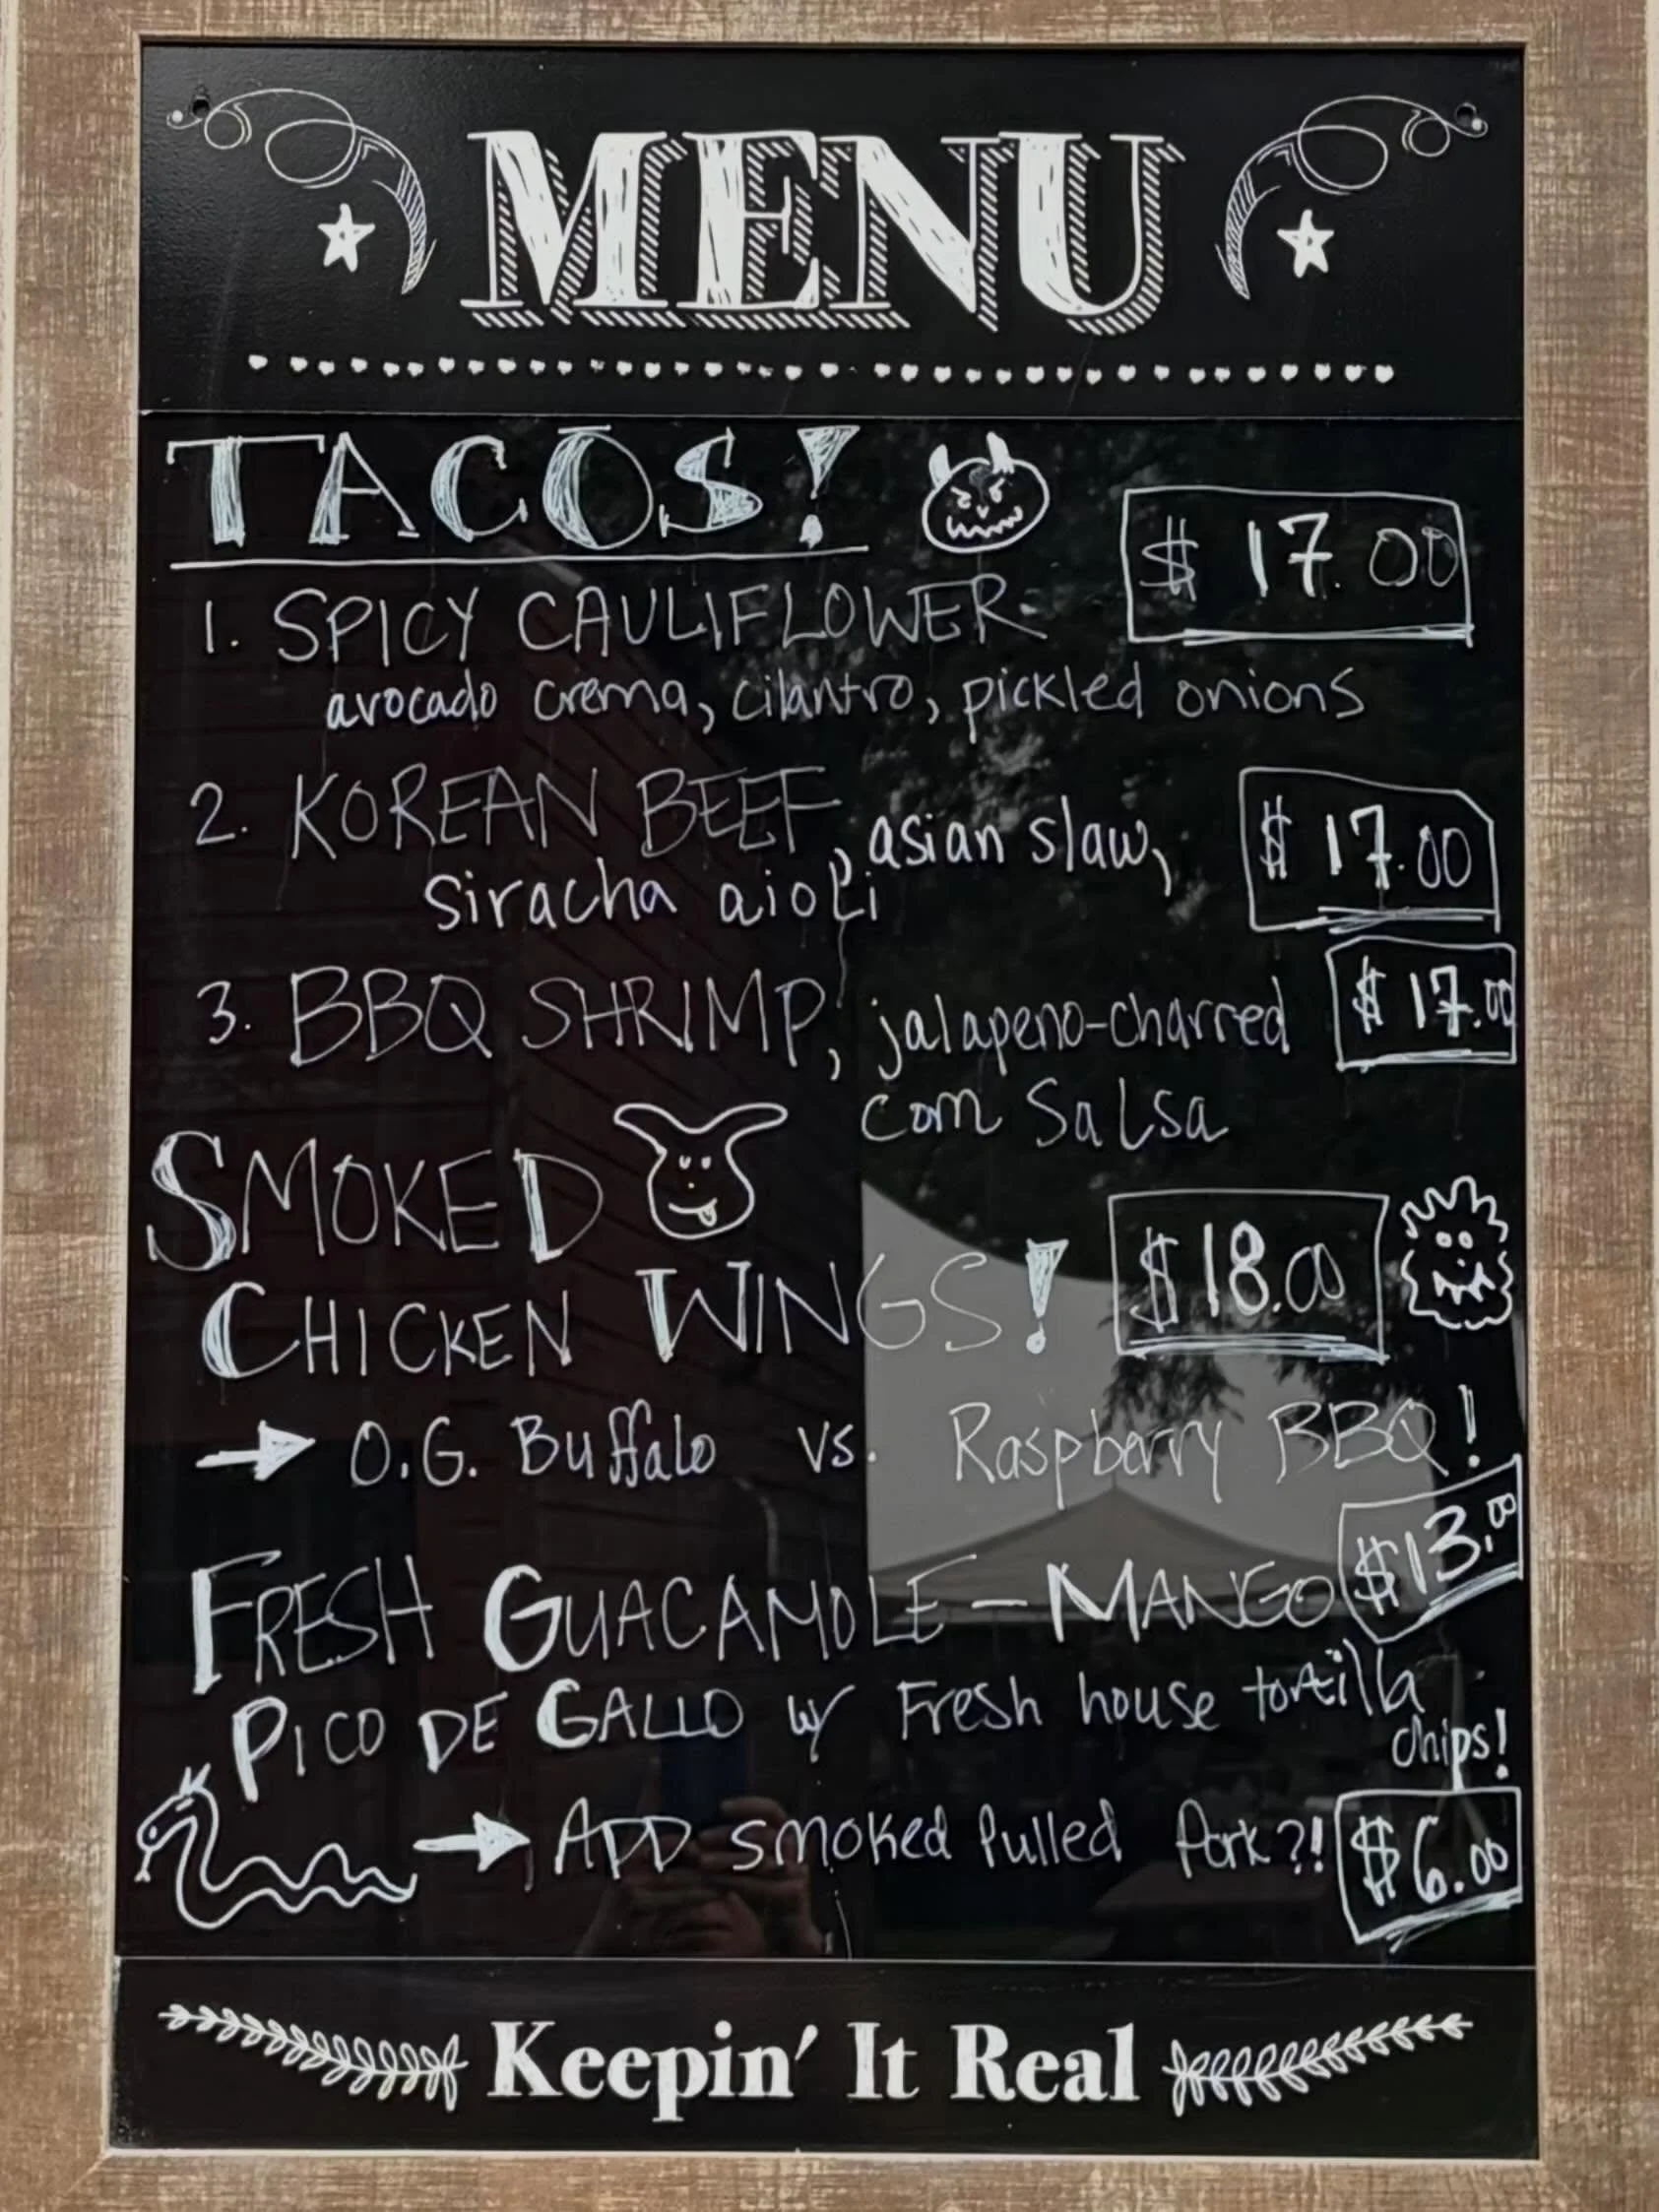 MENU
TACOS!
1. SPICY CAULIFLOWER- $17.00
avocado crema, cilantro, pickled onions
2. KOREAN BEEF, asian slaw, $17.00
siracha aioli
3. BBQ SHRIMP, jalapeno-charred $17.00
corn Salsa
SMOKED
CHICKEN WINGS! $18.00
→ O.G. Buffalo vs. Raspberry BBQ!
FRESH GUACAMOLE - MANGO $13.00
PICO DE GALLO w/ Fresh house tortilla
chips!
→ ADD smoked Pulled Pork?! $6.00
Keepin' It Real